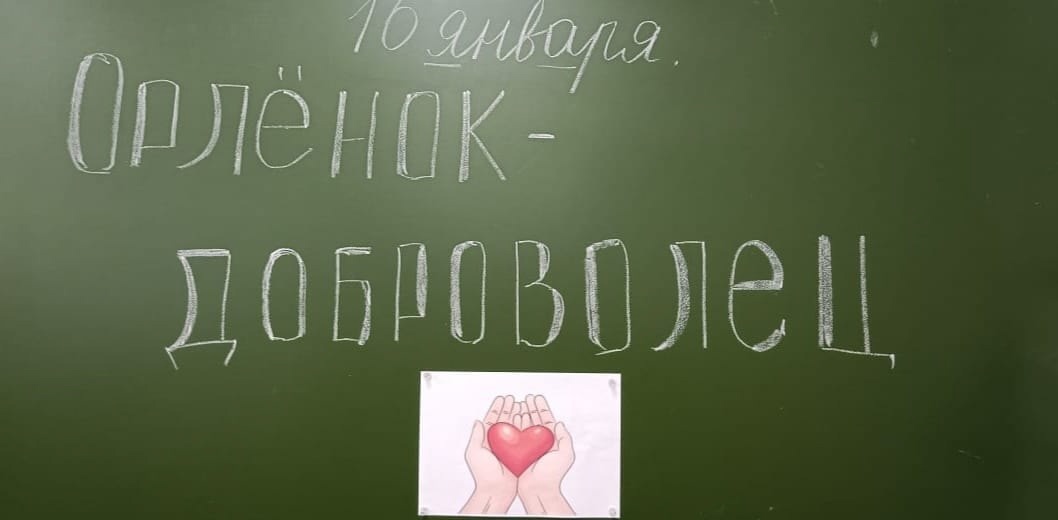 16 января.
Орлёнок -
доброволец